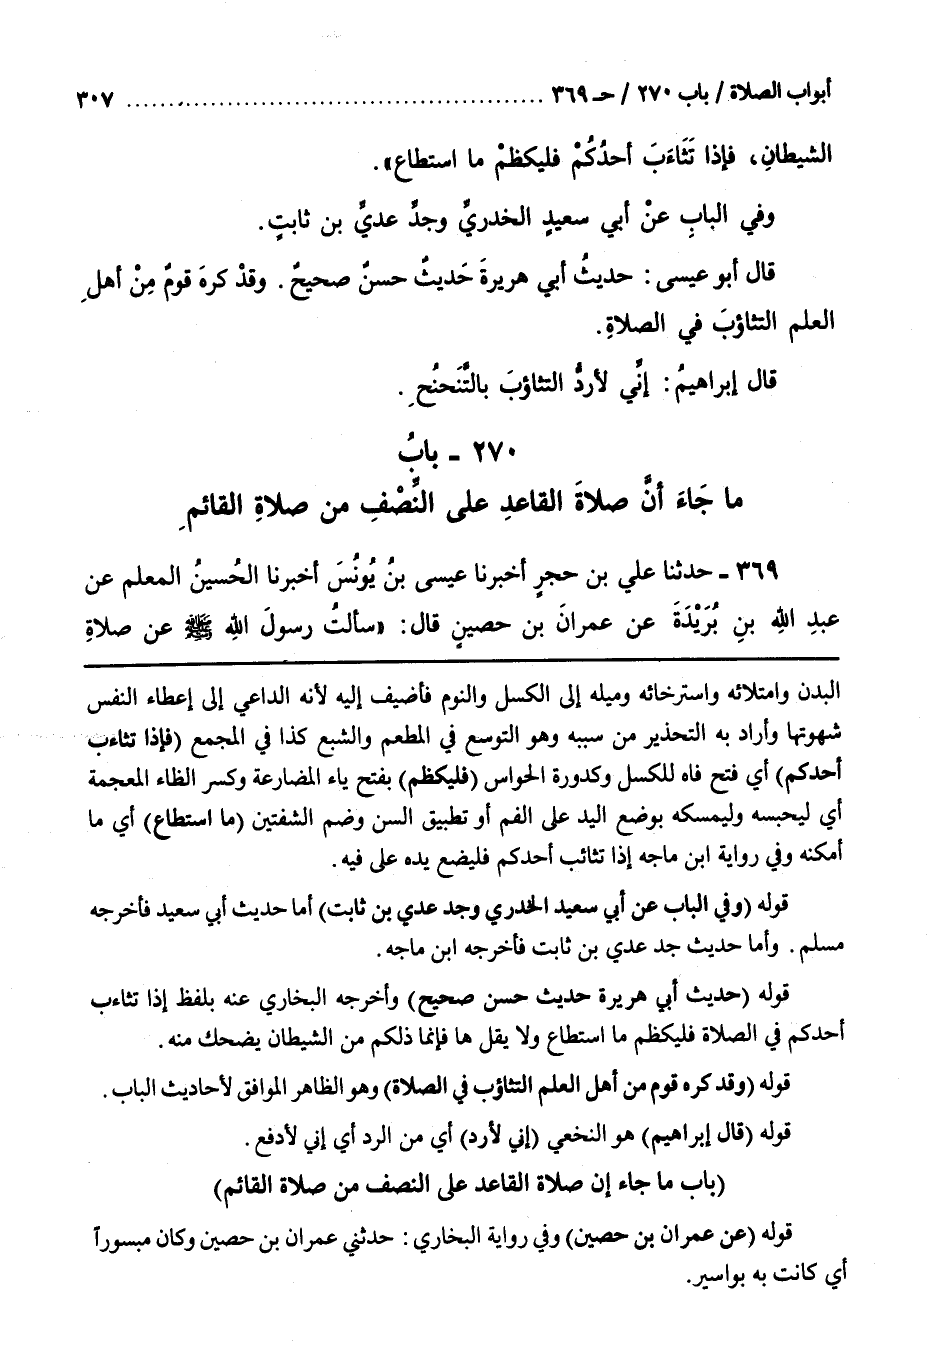 أبواب الصلاة / باب ٢٧٠ / حـ ٣٦٩ ................................................ ٣٠٧
الشيطانِ، فإذا تَثَاءَبَ أحدُكُمْ فليكظمْ ما استطاع».
وفي البابِ عنْ أبي سعيدٍ الخدريِّ وجدِّ عديِّ بن ثابتٍ.
قال أبو عيسى: حديثُ أبي هريرةَ حَديثٌ حسنٌ صحيحٌ. وقدْ كرهَ قومٌ مِنْ أهلِ
العلم التثاؤبَ في الصلاةِ.
قال إبراهيمُ: إنِّي لأردُّ التثاؤبَ بالتَّنَحنُحِ.
٢٧٠ ـ بابُ
ما جَاءَ أنَّ صلاةَ القاعدِ على النِّصْفِ من صلاةِ القائمِ
٣٦٩ ـ حدثنا علي بن حجرٍ أخبرنا عيسى بنُ يُونُسَ أخبرنا الحُسينُ المعلم عن
عبدِ اللهِ بنِ بُرَيْدَةَ عن عمرانَ بن حصينٍ قال: «سألتُ رسولَ اللهِ ﷺ عن صلاةِ
البدن وامتلائه واسترخائه وميله إلى الكسل والنوم فأضيف إليه لأنه الداعي إلى إعطاء النفس
شهوتها وأراد به التحذير من سببه وهو التوسع في المطعم والشبع كذا في المجمع (فإذا تثاءب
أحدكم) أي فتح فاه للكسل وكدورة الحواس (فليكظم) بفتح ياء المضارعة وكسر الظاء المعجمة
أي ليحبسه وليمسكه بوضع اليد على الفم أو تطبيق السن وضم الشفتين (ما استطاع) أي ما
أمكنه وفي رواية ابن ماجه إذا تثائب أحدكم فليضع يده على فيه.
قوله (وفي الباب عن أبي سعيد الخدري وجد عدي بن ثابت) أما حديث أبي سعيد فأخرجه
مسلم. وأما حديث جد عدي بن ثابت فأخرجه ابن ماجه.
قوله (حديث أبي هريرة حديث حسن صحيح) وأخرجه البخاري عنه بلفظ إذا تثاءب
أحدكم في الصلاة فليكظم ما استطاع ولا يقل ها فإنما ذلكم من الشيطان يضحك منه.
قوله (وقد كره قوم من أهل العلم التثاؤب في الصلاة) وهو الظاهر الموافق لأحاديث الباب.
قوله (قال إبراهيم) هو النخعي (إني لأرد) أي من الرد أي إني لأدفع.
(باب ما جاء إن صلاة القاعد على النصف من صلاة القائم)
قوله (عن عمران بن حصين) وفي رواية البخاري: حدثني عمران بن حصين وكان مبسوراً
أي كانت به بواسير.